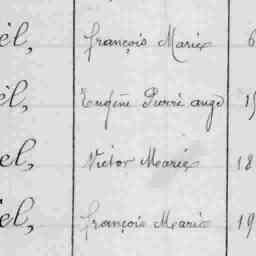 ël, François Marie 6
ël, Eugène Pierre ange 15
el, Victor Marie 18
el, François Marie 19